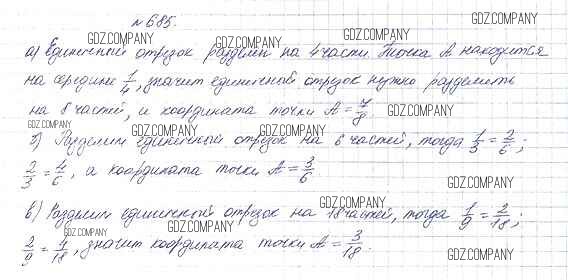 №685.
GDZ.COMPANY
GDZ.COMPANY GDZ.COMPANY GDZ.COMPANY
а) Единичный отрезок разделен на 4 части. Точка А находится
GDZ.COMPANY GDZ.COMPANY
на середине 1/4, значит единичный отрезок нужно разделить
на 8 частей, и координата точки А = 7/8
GDZ.COMPANY
GDZ.COMPANY GDZ.COMPANY GDZ.COMPANY
б) Разделим единичный отрезок на 6 частей, тогда 1/3 = 2/6;
GDZ.COMPANY
2/3 = 4/6, а координата точки А = 3/6
GDZ.COMPANY
GDZ.COMPANY
в) Разделим единичный отрезок на 18 частей, тогда 1/9 = 2/18;
GDZ.COMPANY GDZ.COMPANY
2/9 = 4/18, значит координата точки А = 3/18.
GDZ.COMPANY